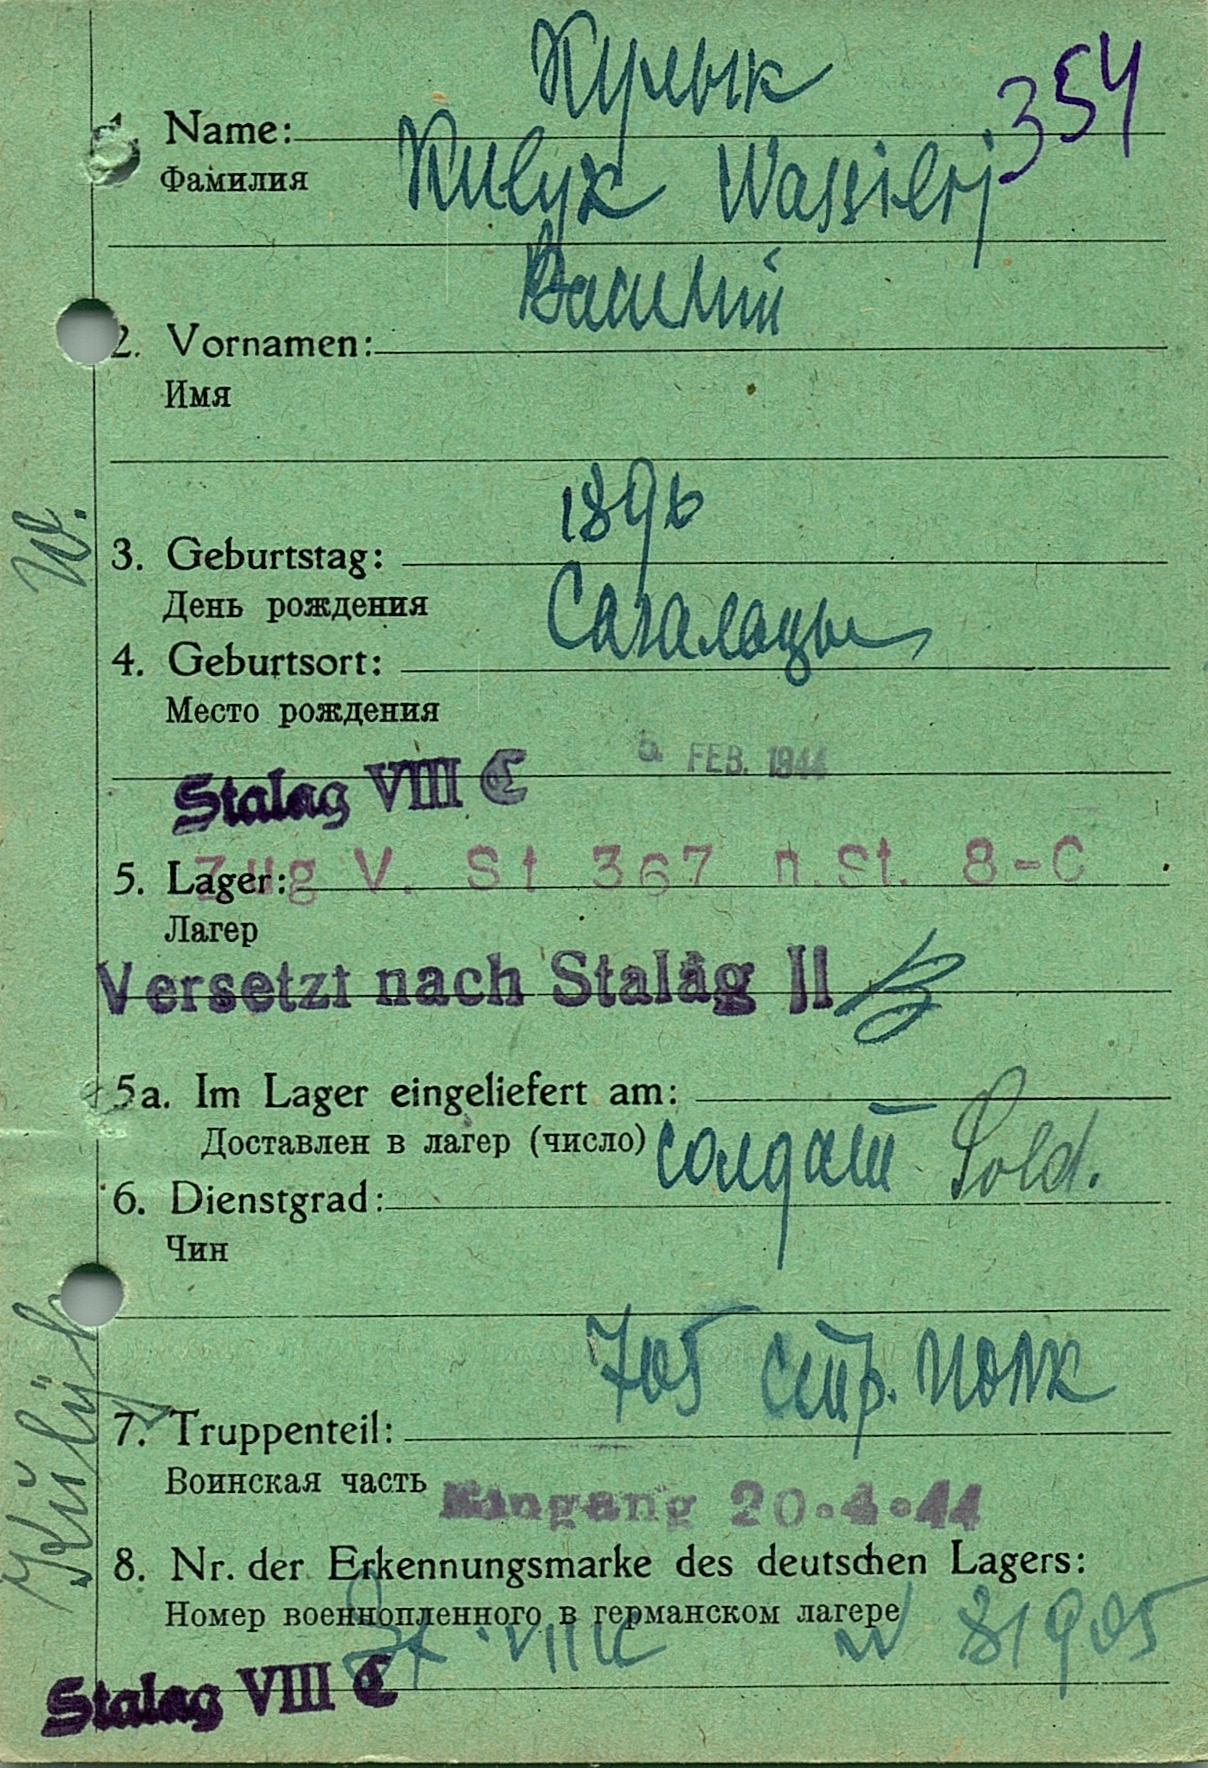 Кулык
354
1. Name:
Фамилия
Kulyk Wassilij
Василий
2. Vornamen:
Имя
1896
3. Geburtstag:
День рождения
4. Geburtsort:
Место рождения
5. FEB. 1944
Stalag VIII C
Zug V. St 367 n. St. 8-C
5. Lager:
Лагер
Versetzt nach Stalag II B
5a. Im Lager eingeliefert am:
Доставлен в лагер (число)
солдат Sold.
6. Dienstgrad:
Чин
705 стр. полк
7. Truppenteil:
Воинская часть
Eingang 20.4.44
8. Nr. der Erkennungsmarke des deutschen Lagers:
Номер военнопленного в германском лагере
St. VIII C N 81905
Stalag VIII C
W.